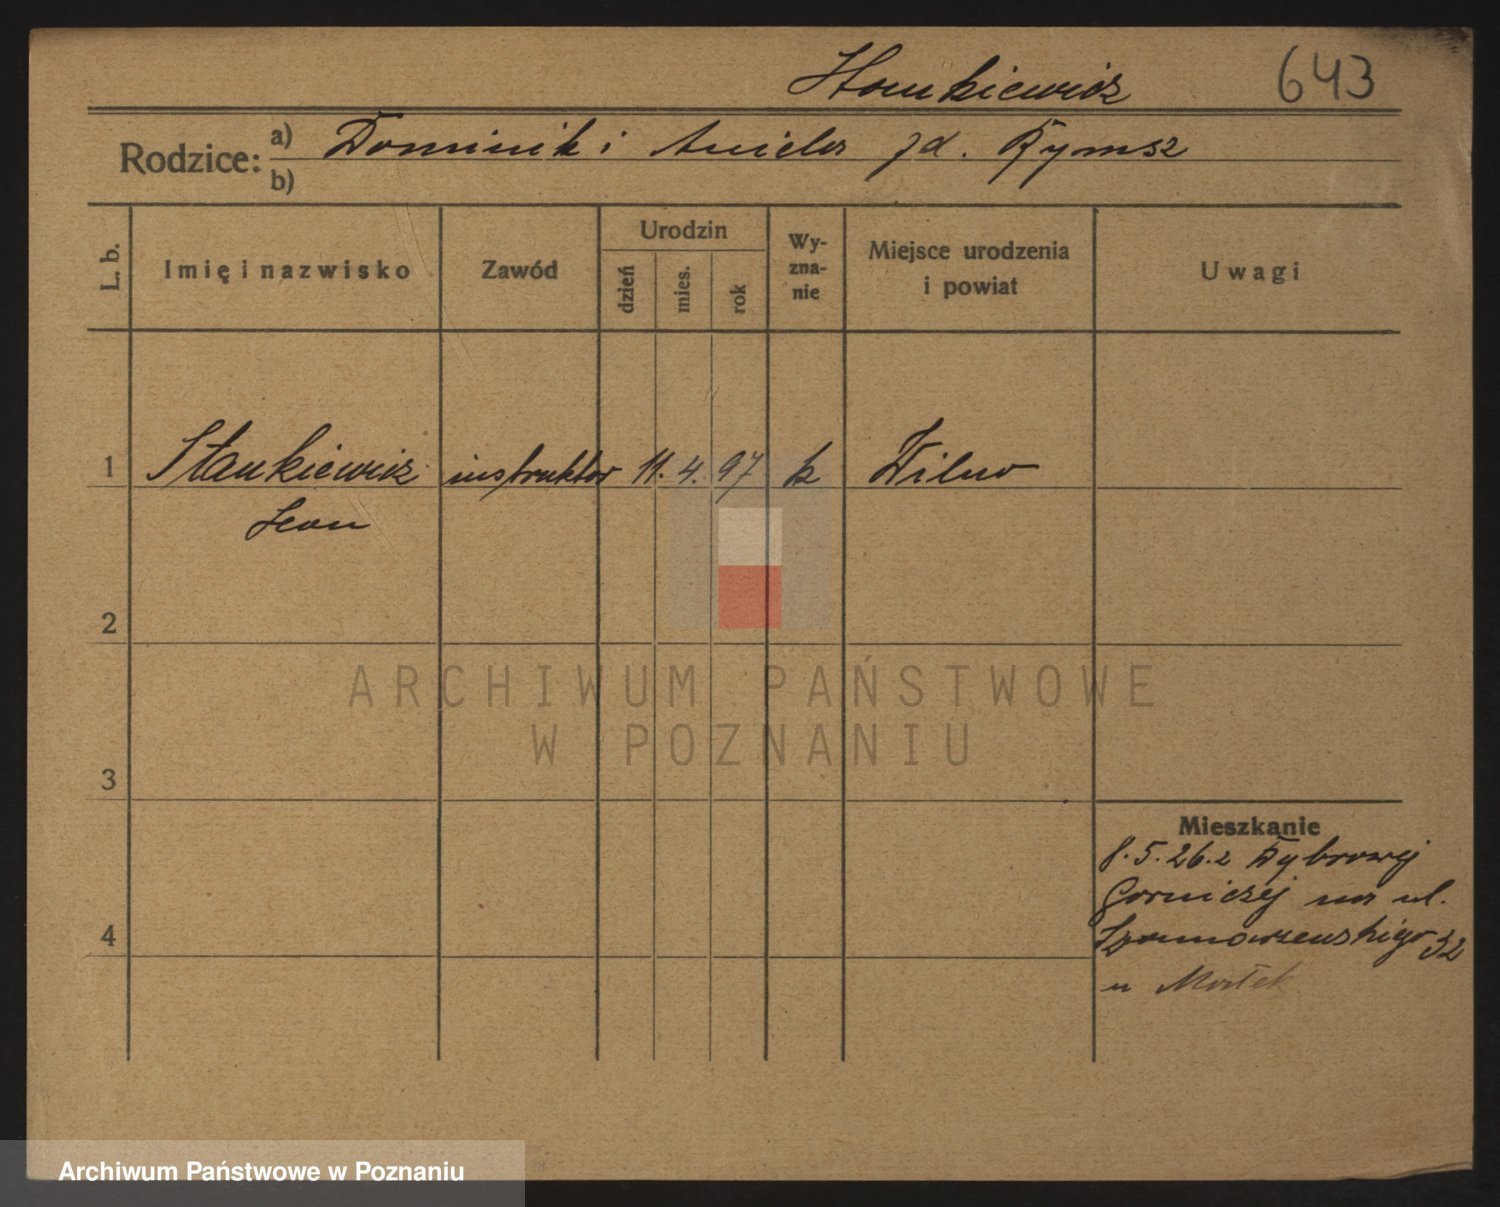 Stankiewicz 643
Rodzice: a) Dominik i Aniela zd. Rymsz
b)
L. b. Imię i nazwisko Zawód Urodzin dzień mies. rok Wy-zna-nie Miejsce urodzenia i powiat Uwagi
1 Stankiewicz instruktor 11. 4. 97 k Wilno
Leon
2
ARCHIWUM PAŃSTWOWE
W POZNANIU
3
Mieszkanie
8.5.26. z Dąbrowej
Gorniczej na ul.
4
32
u
Archiwum Państwowe w Poznaniu